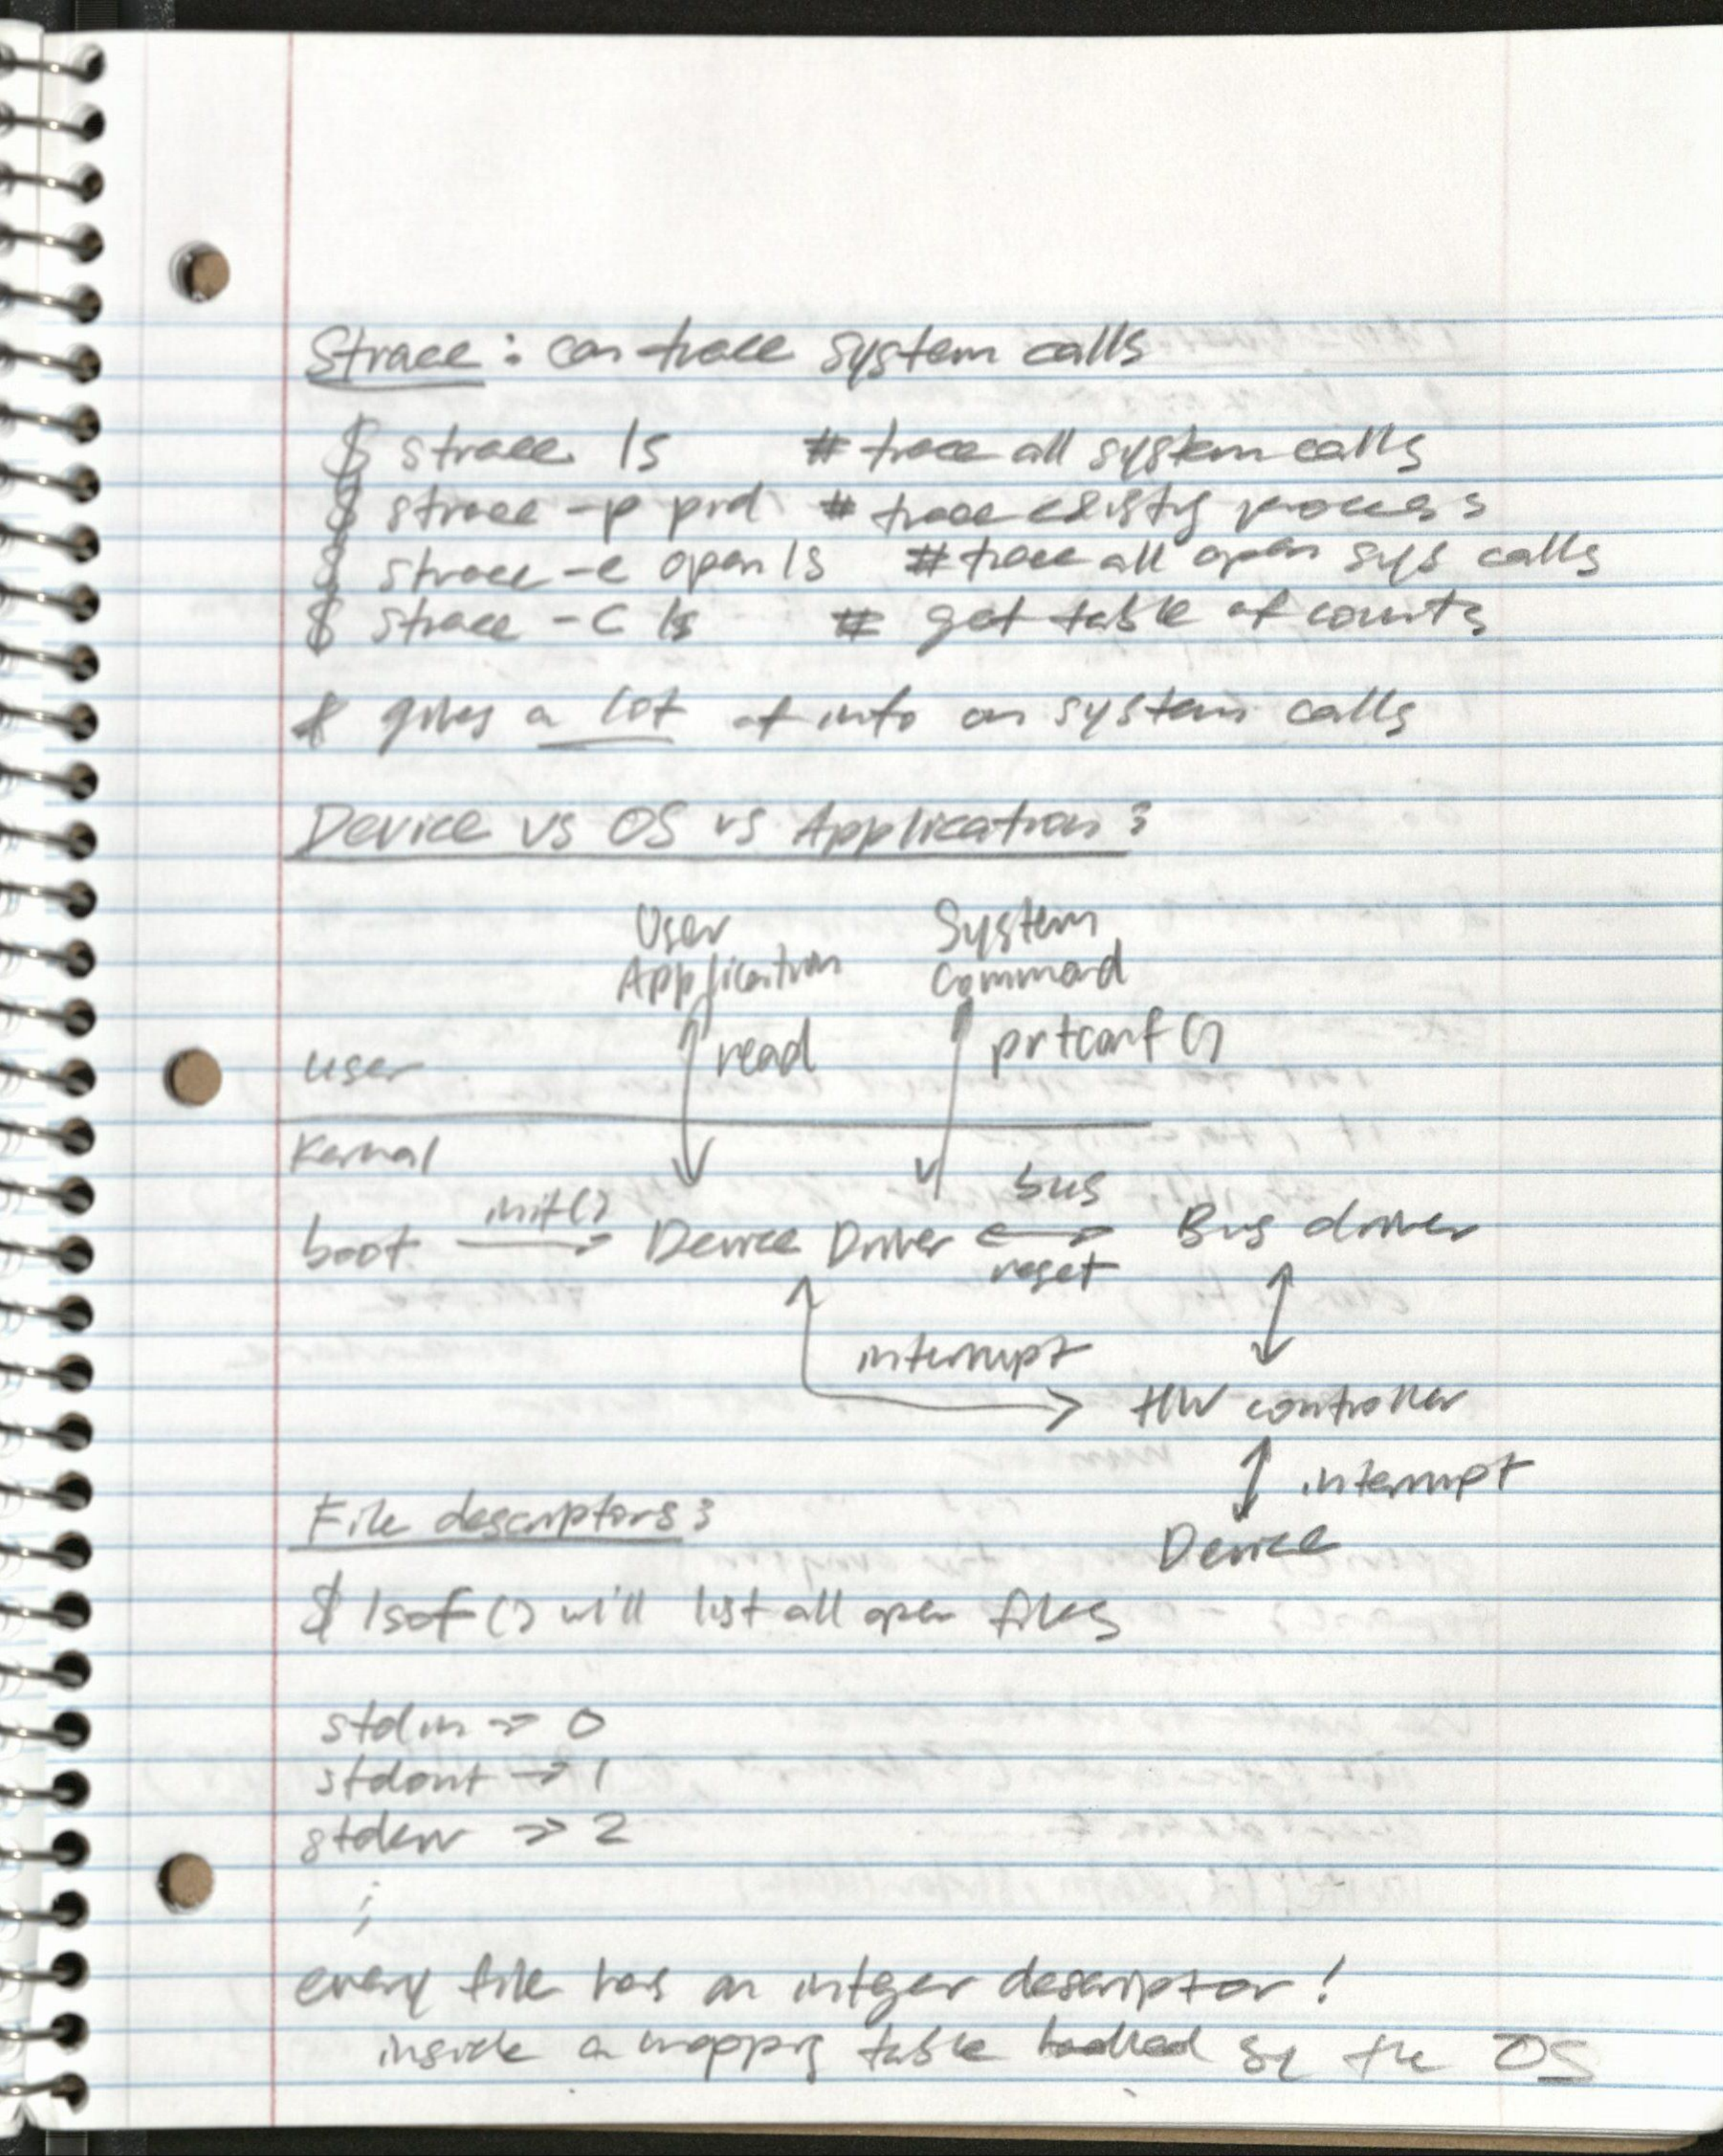 Strace: can trace system calls
$ strace ls # trace all system calls
$ strace -p pid # trace existing process
$ strace -e open ls # trace all open sys calls
$ strace -c ls # get table of counts
* gives a lot of info on system calls
Device vs OS vs Application:
User System
Application Command
user read prtconf()
Kernal
init() bus
boot Device Driver Bus driver
reset
interrupt
HW controller
interrupt
File descriptors:
Device
$ lsof() will list all open files
stdin → 0
stdout → 1
stderr → 2
every file has an integer descriptor!
inside a mapping table by the OS